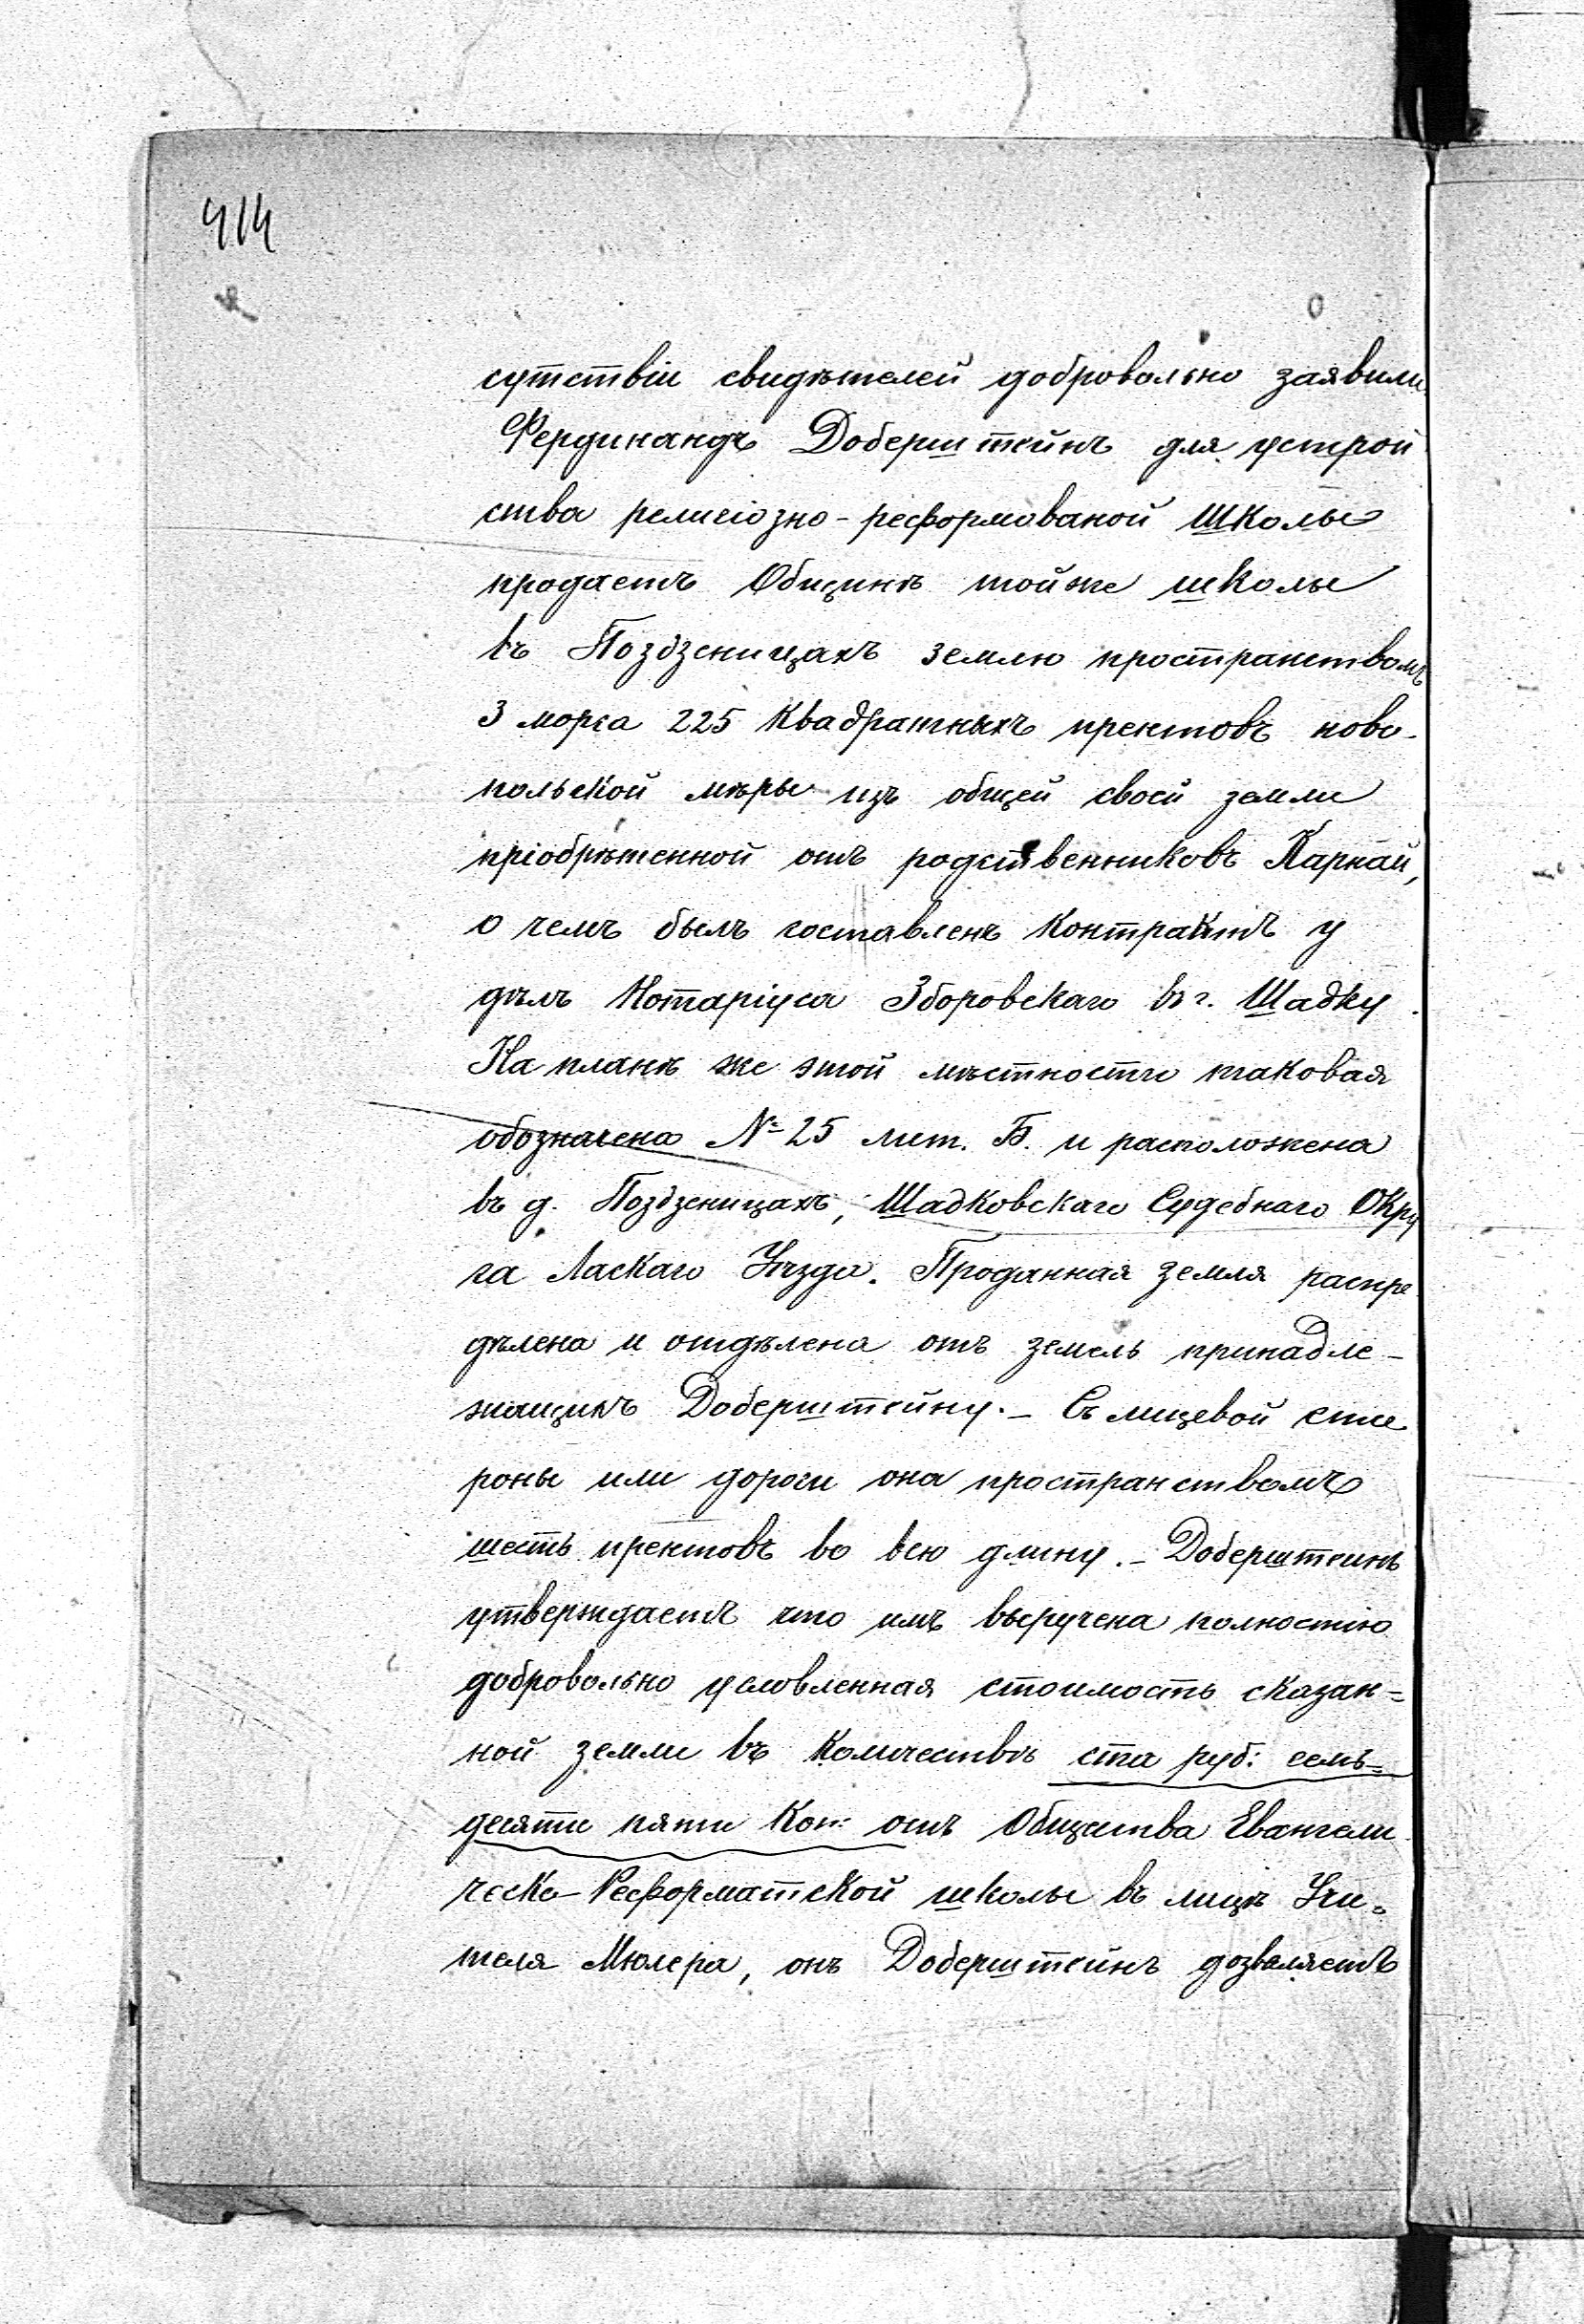 414
сутствіи свидѣтелей добровольно заявили
Фердинандъ Доберштейнъ для устрой
ства религіозно-реформованой школы
продаетъ Общинѣ тойже школы
въ Поздзеницахъ землю пространствомъ
3 морга 225 квадратныхъ прентовъ ново-
польской мѣры изъ общей своей земли
пріобрѣтенной отъ родственниковъ Карнай,
о чемъ былъ составленъ контрактъ у
дѣлъ Нотаріуса Зборовскаго въ г. Шадку.
На планѣ же этой мѣстности таковая
обозначена № 25 лит. Б. и расположена
въ д. Поздзеницахъ, Шадковскаго Судебнаго Окру
га Ласкаго Уѣзда. Проданная земля распре
дѣлена и отдѣлена отъ земель принадле-
жащихъ Доберштейну. – Съ лицевой сто
роны или дороги она пространствомъ
шесть прентовъ во всю длину. – Доберштеинъ
утверждаетъ что имъ выручена полностію
добровольно условленная стоимость сказан=
ной земли въ количествѣ ста руб: семь=
десяти пяти коп: отъ Общества Евангели
ческо-Реформатской школы въ лицѣ Учи=
теля Мюлера, онъ Доберштейнъ дозволяетъ